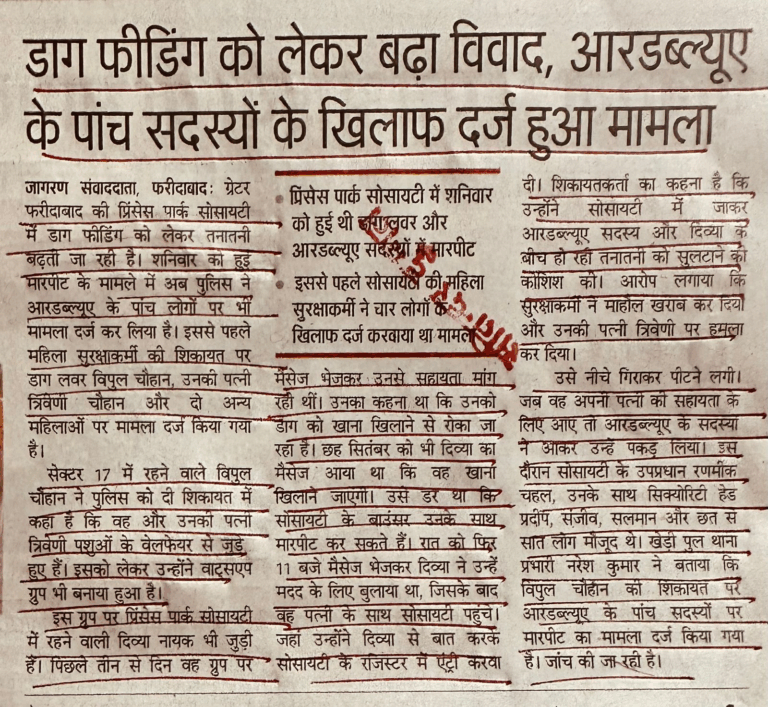 डाग फीडिंग को लेकर बढ़ा विवाद, आरडब्ल्यूए
के पांच सदस्यों के खिलाफ दर्ज हुआ मामला
जागरण संवाददाता, फरीदाबाद: ग्रेटर
फरीदाबाद की प्रिंसेस पार्क सोसायटी
में डाग फीडिंग को लेकर तनातनी
बढ़ती जा रही है। शनिवार को हुई
मारपीट के मामले में अब पुलिस ने
आरडब्ल्यूए के पांच लोगों पर भी
मामला दर्ज कर लिया है। इससे पहले
महिला सुरक्षाकर्मी की शिकायत पर
डाग लवर विपुल चौहान, उनकी पत्नी
त्रिवेणी चौहान और दो अन्य
महिलाओं पर मामला दर्ज किया गया
है।
सेक्टर 17 में रहने वाले विपुल
चौहान ने पुलिस को दी शिकायत में
कहा है कि वह और उनकी पत्नी
त्रिवेणी पशुओं के वेलफेयर से जुड़े
हुए हैं। इसको लेकर उन्होंने वाट्सएप
ग्रुप भी बनाया हुआ है।
इस ग्रुप पर प्रिंसेस पार्क सोसायटी
में रहने वाली दिव्या नायक भी जुड़ी
हैं। पिछले तीन से दिन वह ग्रुप पर
प्रिंसेस पार्क सोसायटी में शनिवार
को हुई थी डाग लवर और
आरडब्ल्यूए सदस्यों में मारपीट
इससे पहले सोसायटी की महिला
सुरक्षाकर्मी ने चार लोगों के
खिलाफ दर्ज करवाया था मामला
मैसेज भेजकर उनसे सहायता मांग
रही थीं। उनका कहना था कि उनको
डाग को खाना खिलाने से रोका जा
रहा है। छह सितंबर को भी दिव्या का
मैसेज आया था कि वह खाना
खिलाने जाएगी। उसे डर था कि
सोसायटी के बाउंसर उनके साथ
मारपीट कर सकते हैं। रात को फिर
11 बजे मैसेज भेजकर दिव्या ने उन्हें
मदद के लिए बुलाया था, जिसके बाद
वह पत्नी के साथ सोसायटी पहुंचे।
जहां उन्होंने दिव्या से बात करके
सोसायटी के रजिस्टर में एंट्री करवा
दी। शिकायतकर्ता का कहना है कि
उन्होंने सोसायटी में जाकर
आरडब्ल्यूए सदस्य और दिव्या के
बीच हो रही तनातनी को सुलटाने की
कोशिश की। आरोप लगाया कि
सुरक्षाकर्मी ने माहौल खराब कर दिया
और उनकी पत्नी त्रिवेणी पर हमला
कर दिया।
उसे नीचे गिराकर पीटने लगी।
जब वह अपनी पत्नी की सहायता के
लिए आए तो आरडब्ल्यूए के सदस्यों
ने आकर उन्हें पकड़ लिया। इस
दौरान सोसायटी के उपप्रधान रणमीक
चहल, उनके साथ सिक्योरिटी हेड
प्रदीप, संजीव, सलमान और छत से
सात लोग मौजूद थे। खेड़ी पुल थाना
प्रभारी नरेश कुमार ने बताया कि
विपुल चौहान की शिकायत पर
आरडब्ल्यूए के पांच सदस्यों पर
मारपीट का मामला दर्ज किया गया
है। जांच की जा रही है।